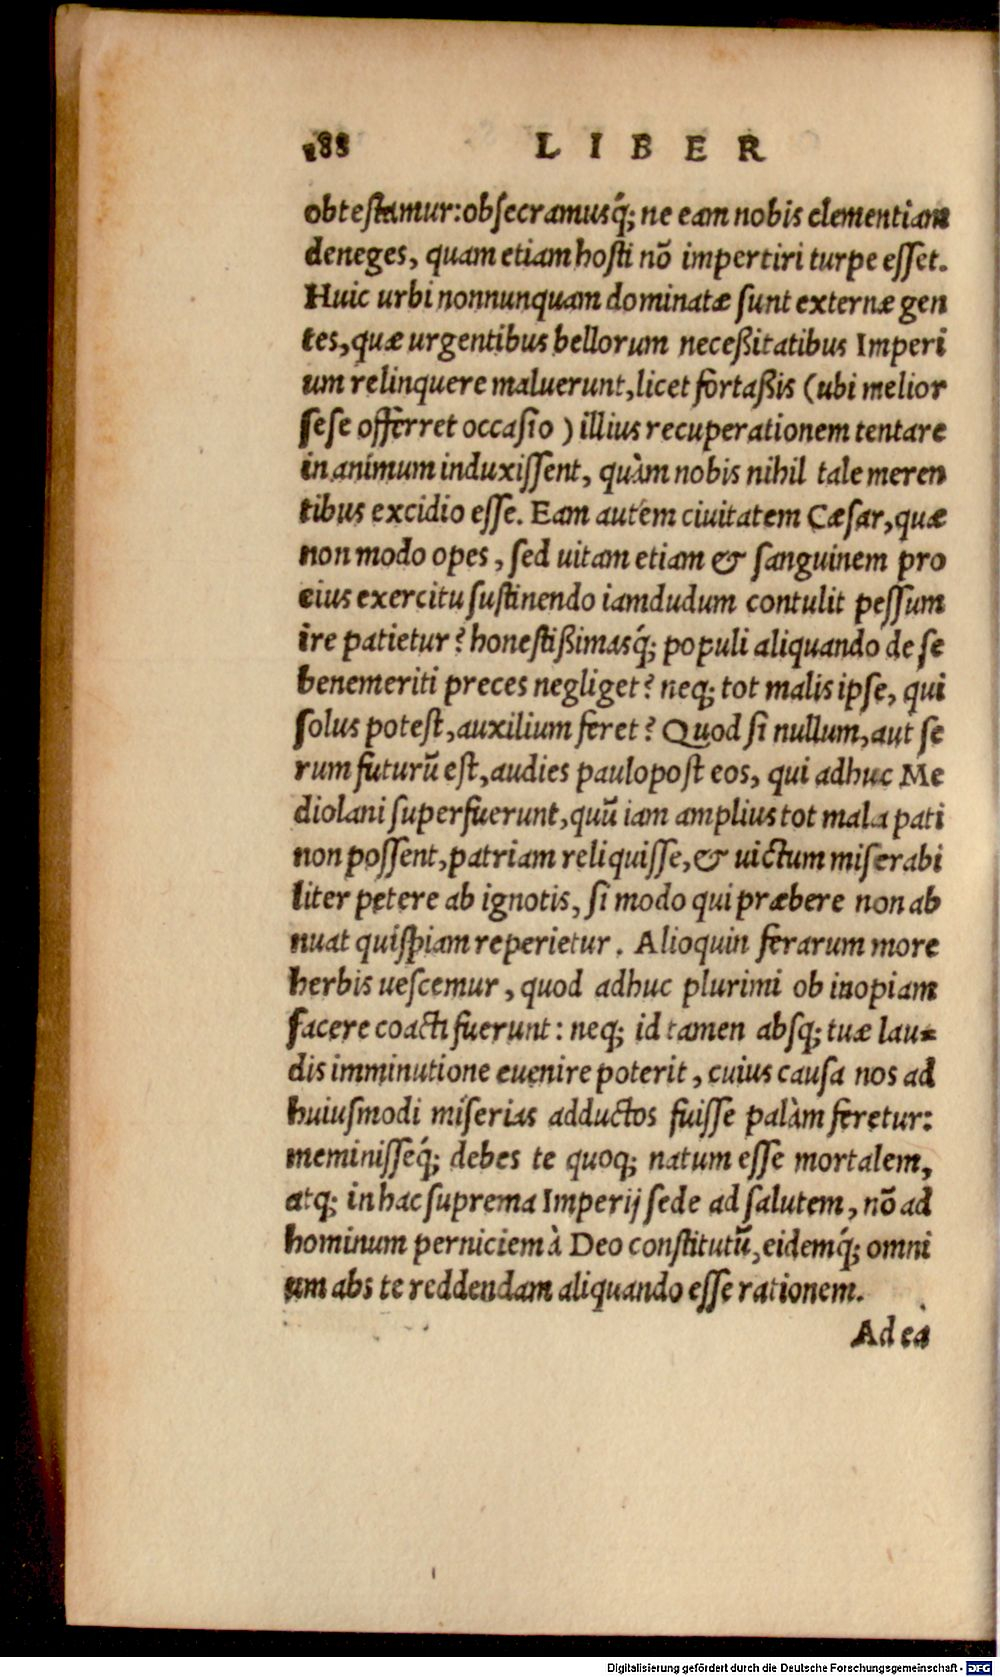 188 LIBER
obtestamur: obsecramusq́; ne eam nobis clementiam
deneges, quam etiam hosti nõ impertiri turpe esset.
Huic urbi nonnunquam dominatæ sunt externæ gen
tes, quæ urgentibus bellorum neceßitatibus Imperi
um relinquere maluerunt, licet fortaßis (ubi melior
sese offerret occasio) illius recuperationem tentare
in animum induxissent, quàm nobis nihil tale meren
tibus excidio esse. Eam autem ciuitatem Cæsar, quæ
non modo opes, sed uitam etiam & sanguinem pro
eius exercitu sustinendo iamdudum contulit pessum
ire patietur? honestißimasq́; populi aliquando de se
benemeriti preces negliget? neq; tot malis ipse, qui
solus potest, auxilium feret? Quod si nullum, aut se
rum futurũ est, audies paulopost eos, qui adhuc Me
diolani superfuerunt, quũ iam amplius tot mala pati
non possent, patriam reliquisse, & uictum miserabi
liter petere ab ignotis, si modo qui præbere non ab
nuat quispiam reperietur. Alioquin ferarum more
herbis uescemur, quod adhuc plurimi ob inopiam
facere coacti fuerunt: neq; id tamen absq; tuæ lau-
dis imminutione euenire poterit, cuius causa nos ad
huiusmodi miserias adductos fuisse palàm feretur:
meminisseq́; debes te quoq; natum esse mortalem,
atq; in hac suprema Imperij sede ad salutem, nõ ad
hominum perniciem à Deo constitutũ, eidemq́; omni
um abs te reddendam aliquando esse rationem.
Ad ea
Digitalisierung gefördert durch die Deutsche Forschungsgemeinschaft - DFG